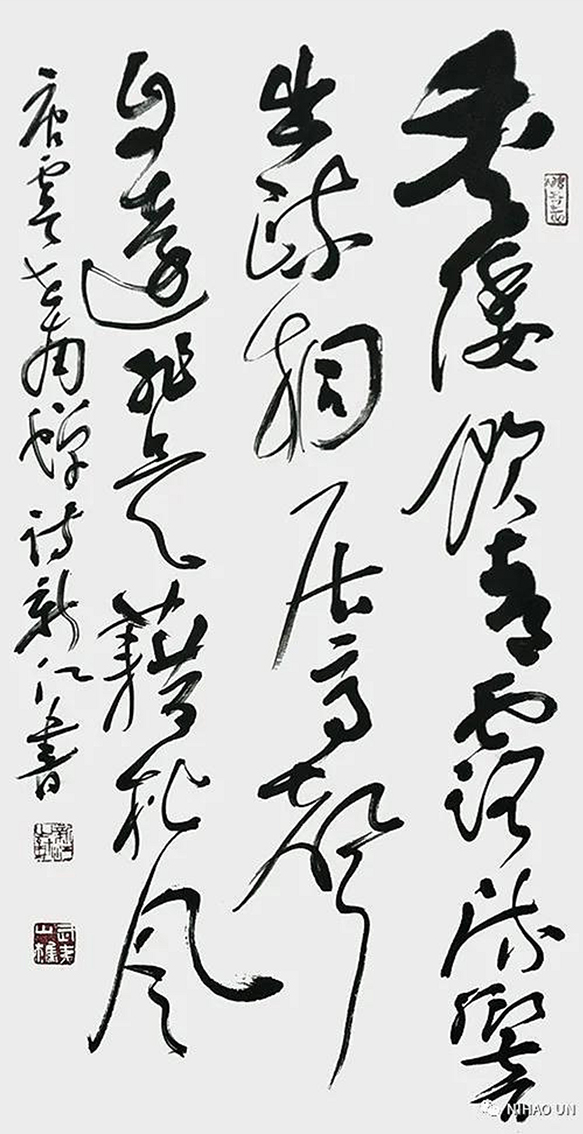 垂緌飲清露流響
出疏桐居高聲
自遠非是藉秋風
唐虞世南蟬詩新江書
NIHAO UN